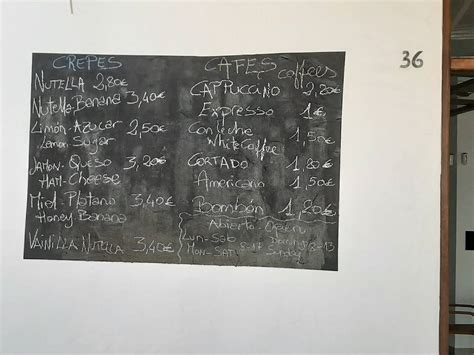 CREPES
NUTELLA 2,80€
Nutella-Banana 3,40€
Limón-Azucar 2,50€
Lemon Sugar
JAMON-QUESO 3,20€
HAM-CHEESE
Miel-Platano 3,40€
Honey Banana
VAINILLA NUTELLA 3,40€
CAFES coffees
CAPPUCCINO 2,20€
Expresso 1€
Con leche 1,50€
White Coffee
CORTADO
Americano 1,50€
Bombón
Abierto Open
Lun-Sab
Mon-Sat
Sunday
36